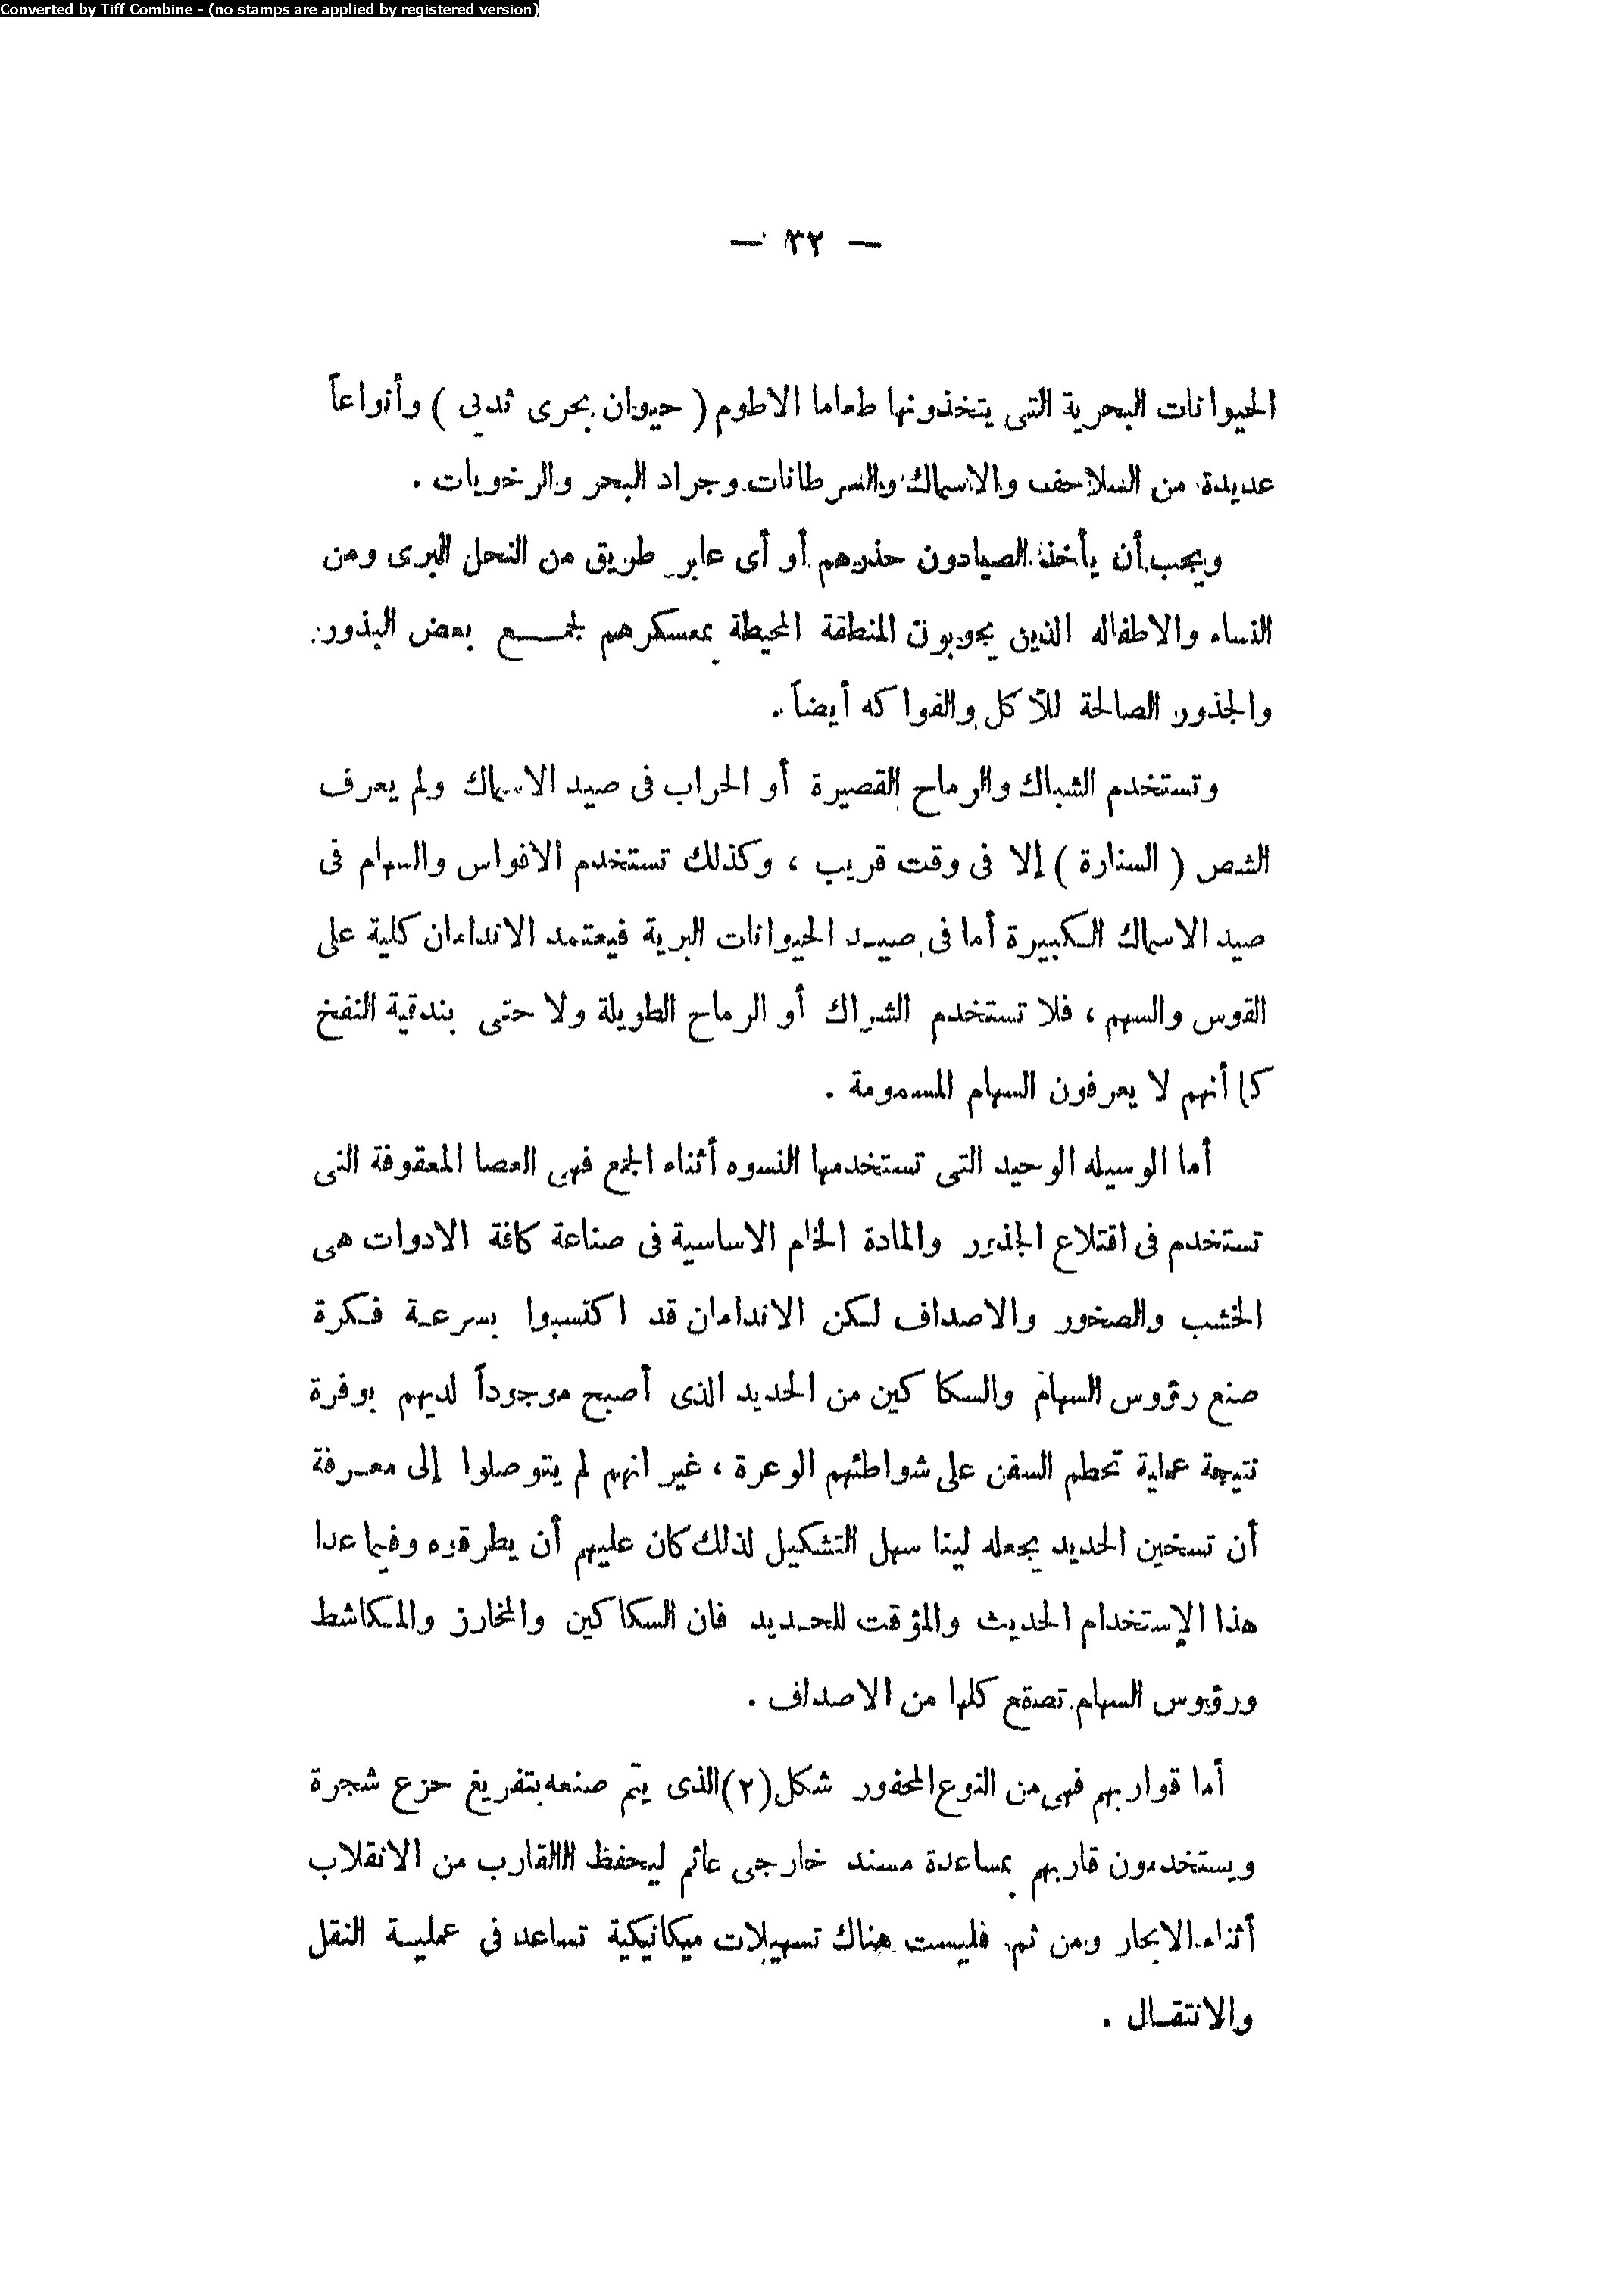 Converted by Tiff Combine - (no stamps are applied by registered version)
— ٣٢ —
الحيوانات البحرية التى يتخذونها طعاما الاطوم ( حيوان بحرى ثدي ) وأنواعاً
عديدة من السلاحف والاسماك والسرطانات وجراد البحر والرخويات .
ويجب أن يأخذ الصيادون حذرهم أو أى عابر طريق من النحل البرى ومن
النساء والاطفاله الذين يجوبون المنطقة المحيطة بمعسكرهم لجمـــع بعض البذور
والجذور الصالحة للأكل والفواكه أيضاً .
وتستخدم الشباك والرماح القصيرة أو الحراب فى صيد الاسماك ولم يعرف
الشص ( السنارة ) إلا فى وقت قريب ، وكذلك تستخدم الافواس والسهام فى
صيد الاسماك الكبيرة أما فى صيـد الحيوانات البرية فيعتمد الاندامان كلية على
القوس والسهم ، فلا تستخدم الشراك أو الرماح الطويلة ولا حتى بندقية النفخ
كما أنهم لا يعرفون السهام المسمومة .
أما الوسيله الوحيد التى تستخدمها النسوه أثناء الجمع فهى العصا المعقوفة التى
تستخدم فى اقتلاع الجذور والمادة الخام الاساسية فى صناعة كافة الادوات هى
الخشب والصخور والاصداف لـكن الاندامان قد اكتسبوا بسرعـة فـكرة
صنع رؤوس السهام والسكاكين من الحديد الذى أصبح موجوداً لديهم بوفرة
نتيجة عملية تحطم السفن على شواطئهم الوعرة ، غير انهم لم يتوصلوا إلى معـرفة
أن تسخين الحديد يجعله لينا سهل التشكيل لذلك كان عليهم أن يطرقوه وفيما عدا
هذا الإستخدام الحديث والمؤقت للحـديد فان السكاكين والمخارز والمـكاشط
ورؤوس السهام تصقع كلها من الاصداف .
أما قواربهم فهى من النوع المحفور شكل (٢) الذى يتم صنعه بتفريغ حزع شجرة
ويستخدمون قاربهم بمساعدة مسند خارجى عائم ليحفظ االقارب من الانقلاب
أثناء الابحار ومن ثم فليست هناك تسهيلات ميكانيكية تساعد فى عمليـة النقل
والانتقـال .